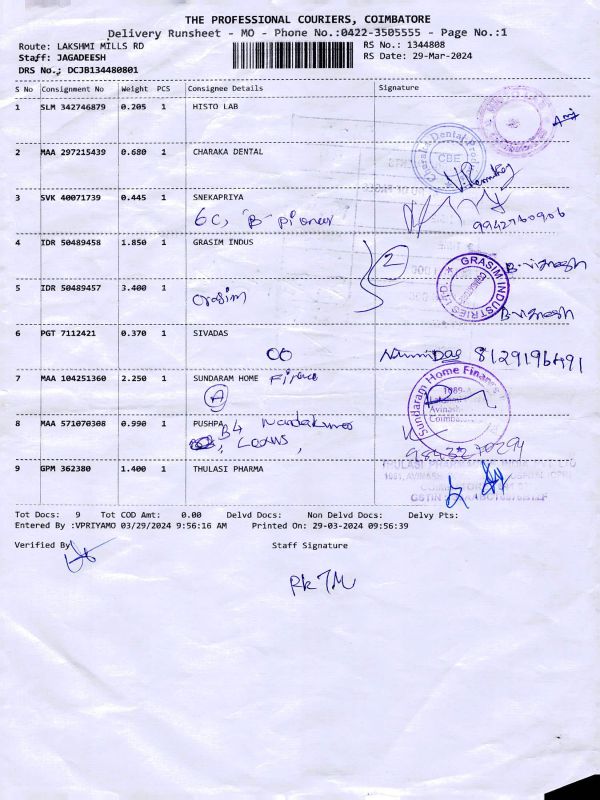 THE PROFESSIONAL COURIERS, COIMBATORE
Delivery Runsheet - MO - Phone No.:0422-3505555 - Page No.:1
Route: LAKSHMI MILLS RD RS No.: 1344808
Staff: JAGADEESH RS Date: 29-Mar-2024
DRS No.: DCJB134480801
S No Consignment No Weight PCS Consignee Details Signature
1 SLM 342746879 0.205 1 HISTO LAB
2 MAA 297215439 0.680 1 CHARAKA DENTAL
CBE
3 SVK 40071739 0.445 1 SNEKAPRIYA
6C, B- pioneer 9942760906
4 IDR 50489458 1.850 1 GRASIM INDUS
2 B.vignesh
GRASIM INDUSTRIES LTD.
5 IDR 50489457 3.400 1
Grasim B.vignesh
6 PGT 7112421 0.370 1 SIVADAS
OO
7 MAA 104251360 2.250 1 SUNDARAM HOME
A
Sundaram Home Finance
8 MAA 571070308 0.990 1 PUSHPA B4 Nandakumar
9 GPM 362380 1.400 1 THULASI PHARMA
THULASI PHARMA
Tot Docs: 9 Tot COD Amt: 0.00 Delvd Docs: Non Delvd Docs: Delvy Pts:
Entered By :VPRIYAMO 03/29/2024 9:56:16 AM Printed On: 29-03-2024 09:56:39
Verified By Staff Signature